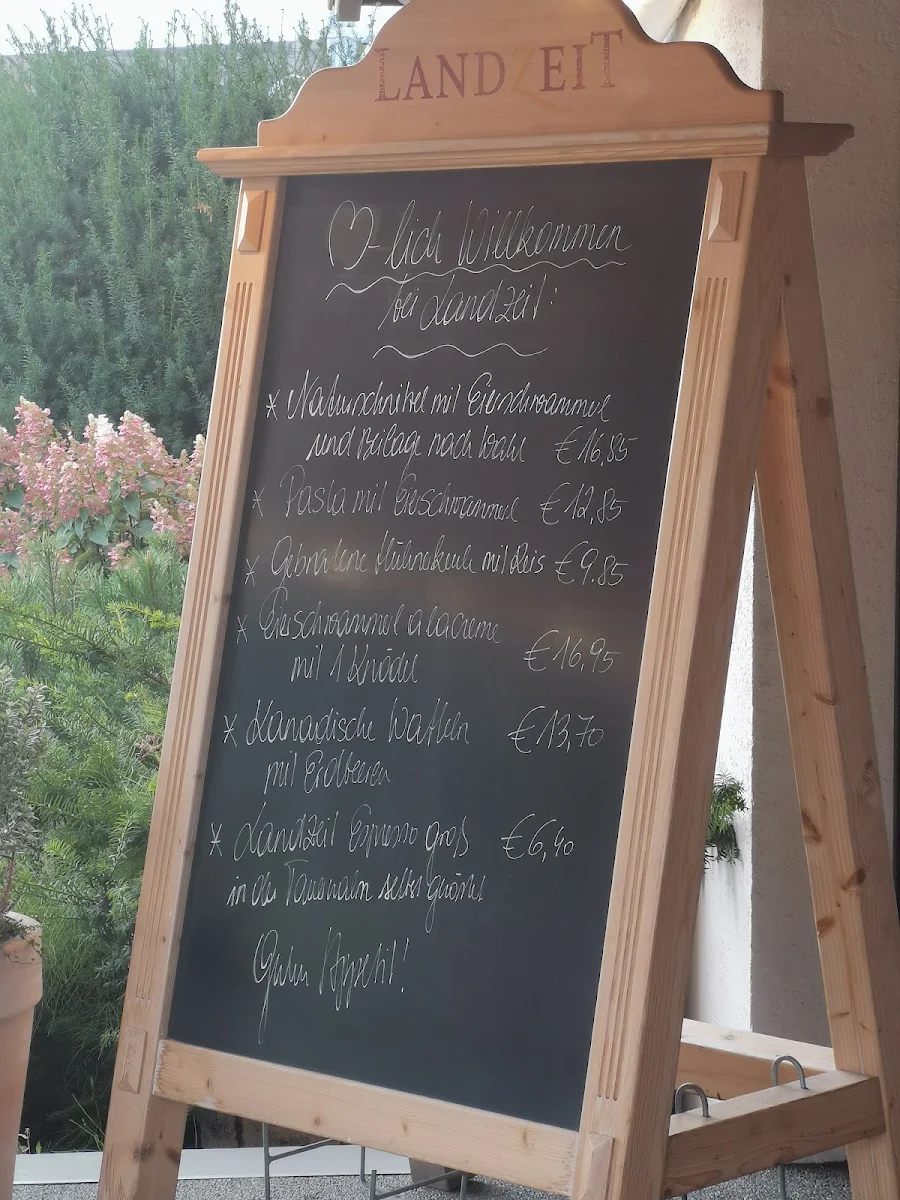 LANDZEIT
♡-lich Willkommen
bei Landzeit:
* Naturschnitzel mit Eierschwammerl
und Beilage nach Wahl €16,85
* Pasta mit Eierschwammerl €12,85
* Gebratene Hühnerkeule mit Reis €9.85
* Eierschwammerl a la creme
mit 1 Knödel €16,95
* Kanadische Waffeln €13,70
mit Erdbeeren
* Landzeit Espresso groß €6,40
in der selbst geröstet
Guten Appetit!